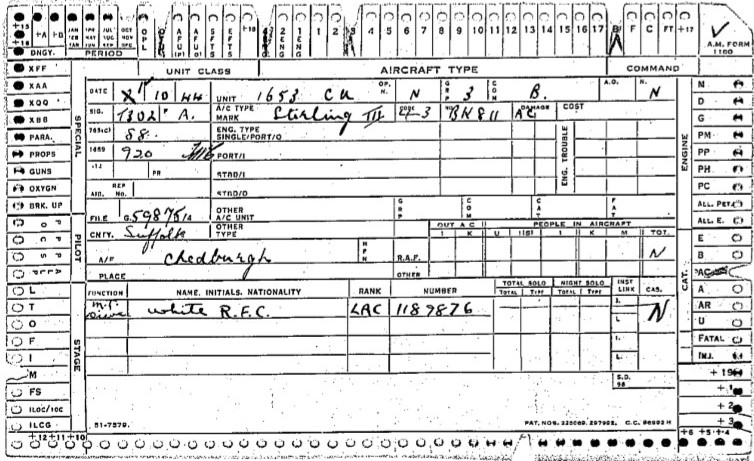 +A +B JAN FEB MAR APR MAY JUN JUL AUG SEP OCT NOV DEC OPL 1 ENG 4 5 6 7 8 9 10 11 12 13 14 15 16 17 B F C FT +17
DNGY. PERIOD
A.M. FORM 1180
UNIT CLASS AIRCRAFT TYPE COMMAND
XFF
XAA
XQQ
XBB
PARA.
PROPS
GUNS
OXYGN
BRK. UP
SPECIAL
DATE 10 44 UNIT 1653 CU OP. N. N GRP 3 COM B. A.O. H. N
SIG. T302 A. A/C TYPE MARK Stirling III CODE NO. BK811 DAMAGE AC COST
765(C) 88. ENG. TYPE SINGLE/PORT/O
1669 920 PORT/I
PR STBD/I
AIB. REP NO. STBD/O
ENG. TROUBLE
FILE G.59875/A OTHER A/C UNIT GRP COM CAT FAT
CNTY. Suffolk OTHER TYPE OUT A C PEOPLE IN AIRCRAFT
I K U I(S) I K M TOT.
A/F Chedburgh R.A.F. N
PLACE OTHER
PILOT
FUNCTION NAME, INITIALS, NATIONALITY RANK NUMBER TOTAL SOLO NIGHT SOLO INST LINK CAS.
TOTAL TYPE TOTAL TYPE
M.T. white R.F.C. LAC 1189876 N
STAGE
S.D. 98
51-7379. PAT. NOS. C.C.
L
T
O
F
I
M
FS
ILOC/IOC
ILCG
+12 +11 +10
ENGINE
N
D
G
PM
PP
PH
PC
ALL. PET.
ALL. E.
CAT.
E
B
AC
A
AR
U
FATAL
INJ.
+19
+1
+2
+3
+6 +5 +4